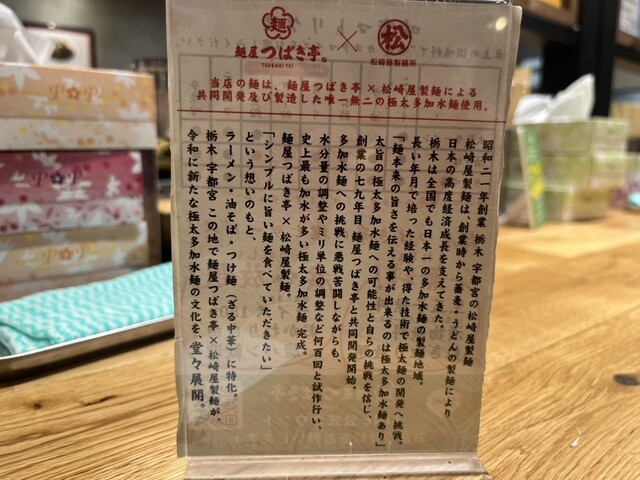 麺
麺屋つばき亭。
TSUBAKI TEI
×
松
松崎屋製麺所
当店の麺は、麺屋つばき亭×松崎屋製麺による
共同開発及び製造した唯一無二の極太多加水麺使用。
昭和二一年創業 栃木 宇都宮の松崎屋製麺
松崎屋製麺は、創業時から蕎麦・うどんの製麺により
日本の高度経済成長を支えてきた。
栃木は全国でも日本一の多加水麺の製麺地域。
長い年月で培った経験や、得た技術で極太麺の開発へ挑戦。
「麺本来の旨さを伝える事が出来るのは極太多加水麺あり」
太旨の極太多加水麺への可能性と自らの挑戦を信じ、
創業の七九年目 麺屋つばき亭と共同開発開始。
多加水麺への挑戦に悪戦苦闘しながらも、
水分量の調整やミリ単位の調整など何百回と試作行い、
史上最も加水が多い極太多加水麺 完成。
麺屋つばき亭×松崎屋製麺。
「シンプルに旨い麺を食べていただきたい」
という想いのもと、
ラーメン・油そば・つけ麺（ざる中華）に特化。
栃木 宇都宮 この地で麺屋つばき亭×松崎屋製麺が、
令和に新たな極太多加水麺の文化を、堂々展開。